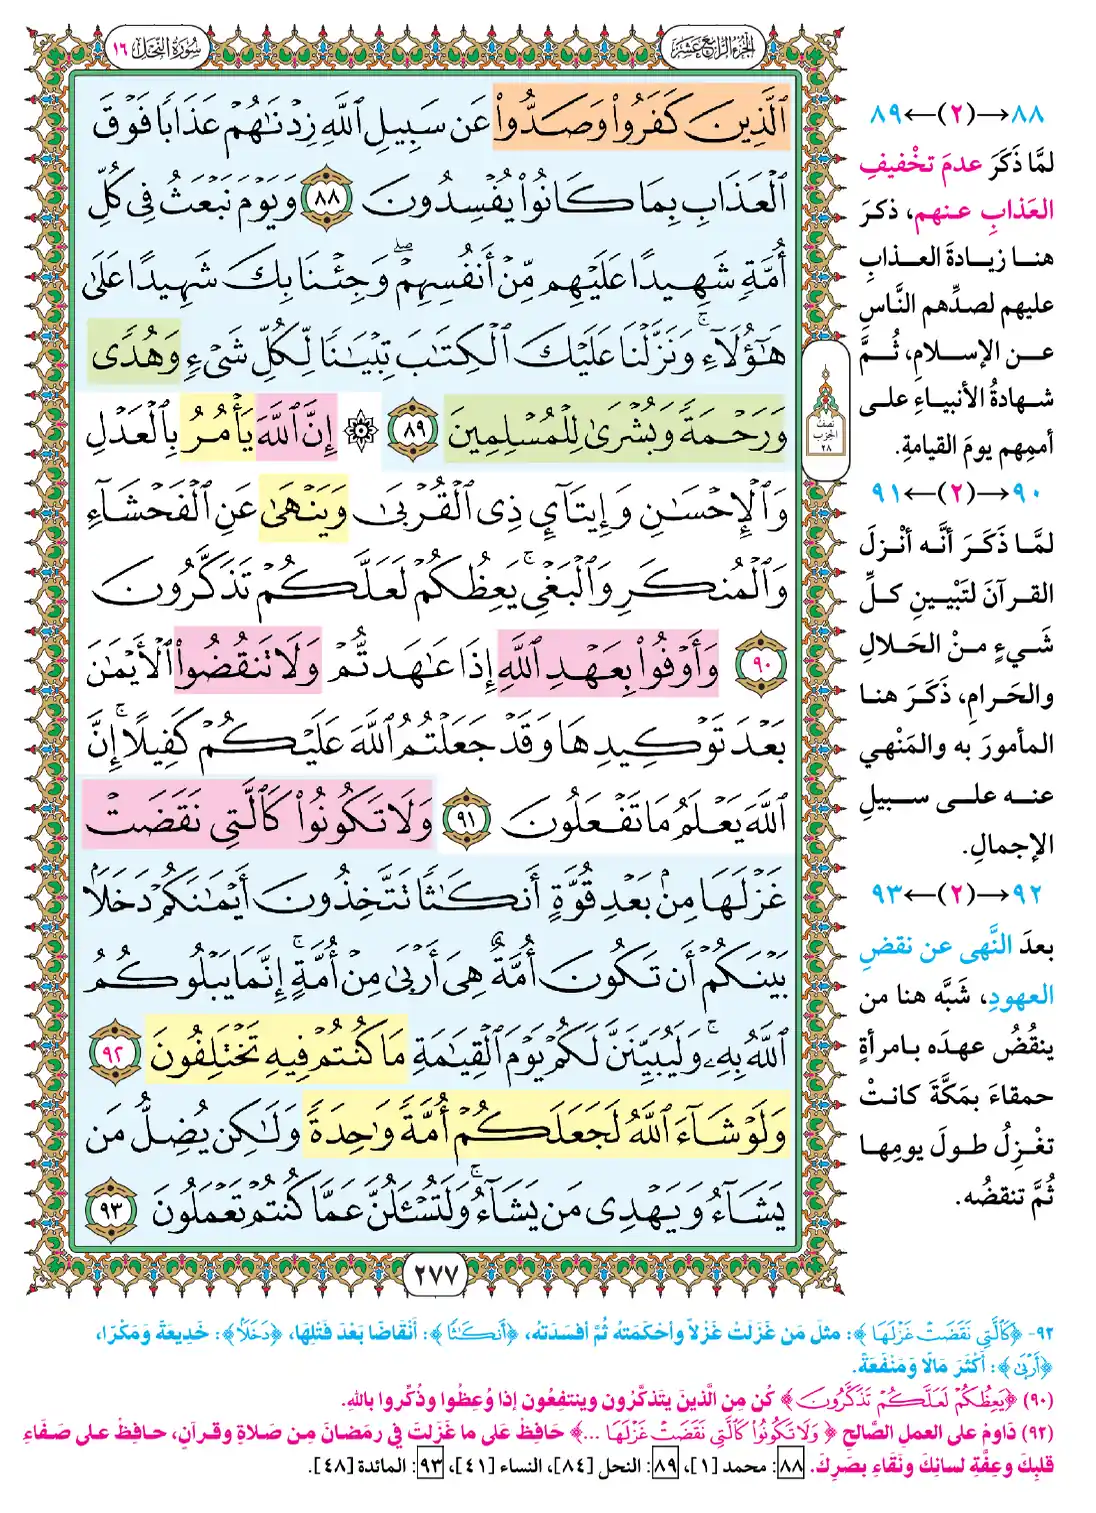 الجزء الرابع عشر
سورة النحل ١٦
ٱلَّذِينَ كَفَرُوا۟ وَصَدُّوا۟ عَن سَبِيلِ ٱللَّهِ زِدْنَـٰهُمْ عَذَابًا فَوْقَ
ٱلْعَذَابِ بِمَا كَانُوا۟ يُفْسِدُونَ ٨٨ وَيَوْمَ نَبْعَثُ فِى كُلِّ
أُمَّةٍ شَهِيدًا عَلَيْهِم مِّنْ أَنفُسِهِمْ ۖ وَجِئْنَا بِكَ شَهِيدًا عَلَىٰ
هَـٰٓؤُلَآءِ ۚ وَنَزَّلْنَا عَلَيْكَ ٱلْكِتَـٰبَ تِبْيَـٰنًا لِّكُلِّ شَىْءٍ وَهُدًى
وَرَحْمَةً وَبُشْرَىٰ لِلْمُسْلِمِينَ ٨٩ ۞ إِنَّ ٱللَّهَ يَأْمُرُ بِٱلْعَدْلِ
وَٱلْإِحْسَـٰنِ وَإِيتَآئِ ذِى ٱلْقُرْبَىٰ وَيَنْهَىٰ عَنِ ٱلْفَحْشَآءِ
وَٱلْمُنكَرِ وَٱلْبَغْىِ ۚ يَعِظُكُمْ لَعَلَّكُمْ تَذَكَّرُونَ
٩٠ وَأَوْفُوا۟ بِعَهْدِ ٱللَّهِ إِذَا عَـٰهَدتُّمْ وَلَا تَنقُضُوا۟ ٱلْأَيْمَـٰنَ
بَعْدَ تَوْكِيدِهَا وَقَدْ جَعَلْتُمُ ٱللَّهَ عَلَيْكُمْ كَفِيلًا ۚ إِنَّ
ٱللَّهَ يَعْلَمُ مَا تَفْعَلُونَ ٩١ وَلَا تَكُونُوا۟ كَٱلَّتِى نَقَضَتْ
غَزْلَهَا مِنۢ بَعْدِ قُوَّةٍ أَنكَـٰثًا تَتَّخِذُونَ أَيْمَـٰنَكُمْ دَخَلًۢا
بَيْنَكُمْ أَن تَكُونَ أُمَّةٌ هِىَ أَرْبَىٰ مِنْ أُمَّةٍ ۚ إِنَّمَا يَبْلُوكُمُ
ٱللَّهُ بِهِۦ ۚ وَلَيُبَيِّنَنَّ لَكُمْ يَوْمَ ٱلْقِيَـٰمَةِ مَا كُنتُمْ فِيهِ تَخْتَلِفُونَ ٩٢
وَلَوْ شَآءَ ٱللَّهُ لَجَعَلَكُمْ أُمَّةً وَٰحِدَةً وَلَـٰكِن يُضِلُّ مَن
يَشَآءُ وَيَهْدِى مَن يَشَآءُ ۚ وَلَتُسْـَٔلُنَّ عَمَّا كُنتُمْ تَعْمَلُونَ ٩٣
٢٧٧
نصف
الحزب
٢٨
٨٨→(٢)←٨٩
لمَّا ذَكَرَ عدمَ تخْفيفِ
العَذابِ عنهم، ذكرَ
هنا زيادةَ العذابِ
عليهم لصدِّهم النَّاسِ
عن الإسلامِ، ثُمَّ
شهادةُ الأنبياءِ على
أممِهم يومَ القيامةِ.
٩٠→(٢)←٩١
لمَّا ذَكَرَ أنَّه أنْزلَ
القرآنَ لتَبْيينِ كلِّ
شَيءٍ منْ الحَلالِ
والحَرامِ، ذَكَرَ هنا
المأمورَ به والمَنْهي
عنه على سبيلِ
الإجمالِ.
٩٢→(٢)←٩٣
بعدَ النَّهى عن نقضِ
العهودِ، شَبَّه هنا من
ينقُضُ عهدَه بامرأةٍ
حمقاءَ بمَكَّةَ كانتْ
تغْزِلُ طولَ يومِها
ثُمَّ تنقضُه.
٩٢- ﴿كَٱلَّتِى نَقَضَتْ غَزْلَهَا﴾: مثلَ مَن غَزَلَتْ غَزْلاً وأحْكَمَتهُ ثُمَّ أفسَدَتهُ، ﴿أَنكَـٰثًا﴾: أنْقَاضًا بَعْدَ فَتْلِهَا، ﴿دَخَلًۢا﴾: خَدِيعَةً وَمَكْرًا،
﴿أَرْبَىٰ﴾: أكْثَرَ مَالًا وَمَنْفَعَةً.
(٩٠) ﴿يَعِظُكُمْ لَعَلَّكُمْ تَذَكَّرُونَ﴾ كُن مِن الَّذينَ يتَذكَّرُون وينتفعُون إذا وُعِظُوا وذُكِّروا باللهِ.
(٩٢) دَاومْ على العملِ الصَّالحِ ﴿وَلَا تَكُونُوا۟ كَٱلَّتِى نَقَضَتْ غَزْلَهَا ...﴾ حَافِظْ عَلى ما غَزَلتَ فِي رمَضانَ مِن صَلاةٍ وقرآنٍ، حافِظْ على صَفَاءِ
قلبِكَ وعِفَّةِ لسانِكَ ونَقَاءِ بصَرِكَ. ٨٨: محمد [١]، ٨٩: النحل [٨٤]، النساء [٤١]، ٩٣: المائدة [٤٨].